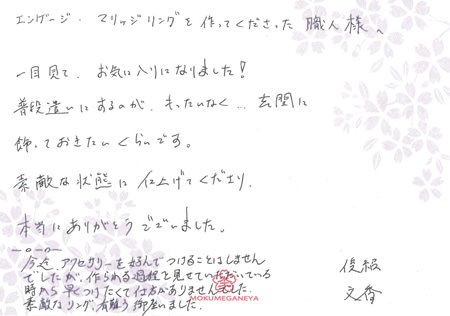 エンゲージ・マリッジリングを作ってくださった職人様へ
一目見て、お気に入りになりました!
普段遣いにするのが、もったいなく…玄関に
飾っておきたいくらいです。
素敵な状態に仕上げてくださり、
本当にありがとうございました。
今迄、アクセサリーを好んでつけることはしません
でしたが、作られる過程を見せていただいている
時から早くつけたくて仕方がありませんでした。
素敵なリング、有難う御座いました。
文香
MOKUMEGANEYA